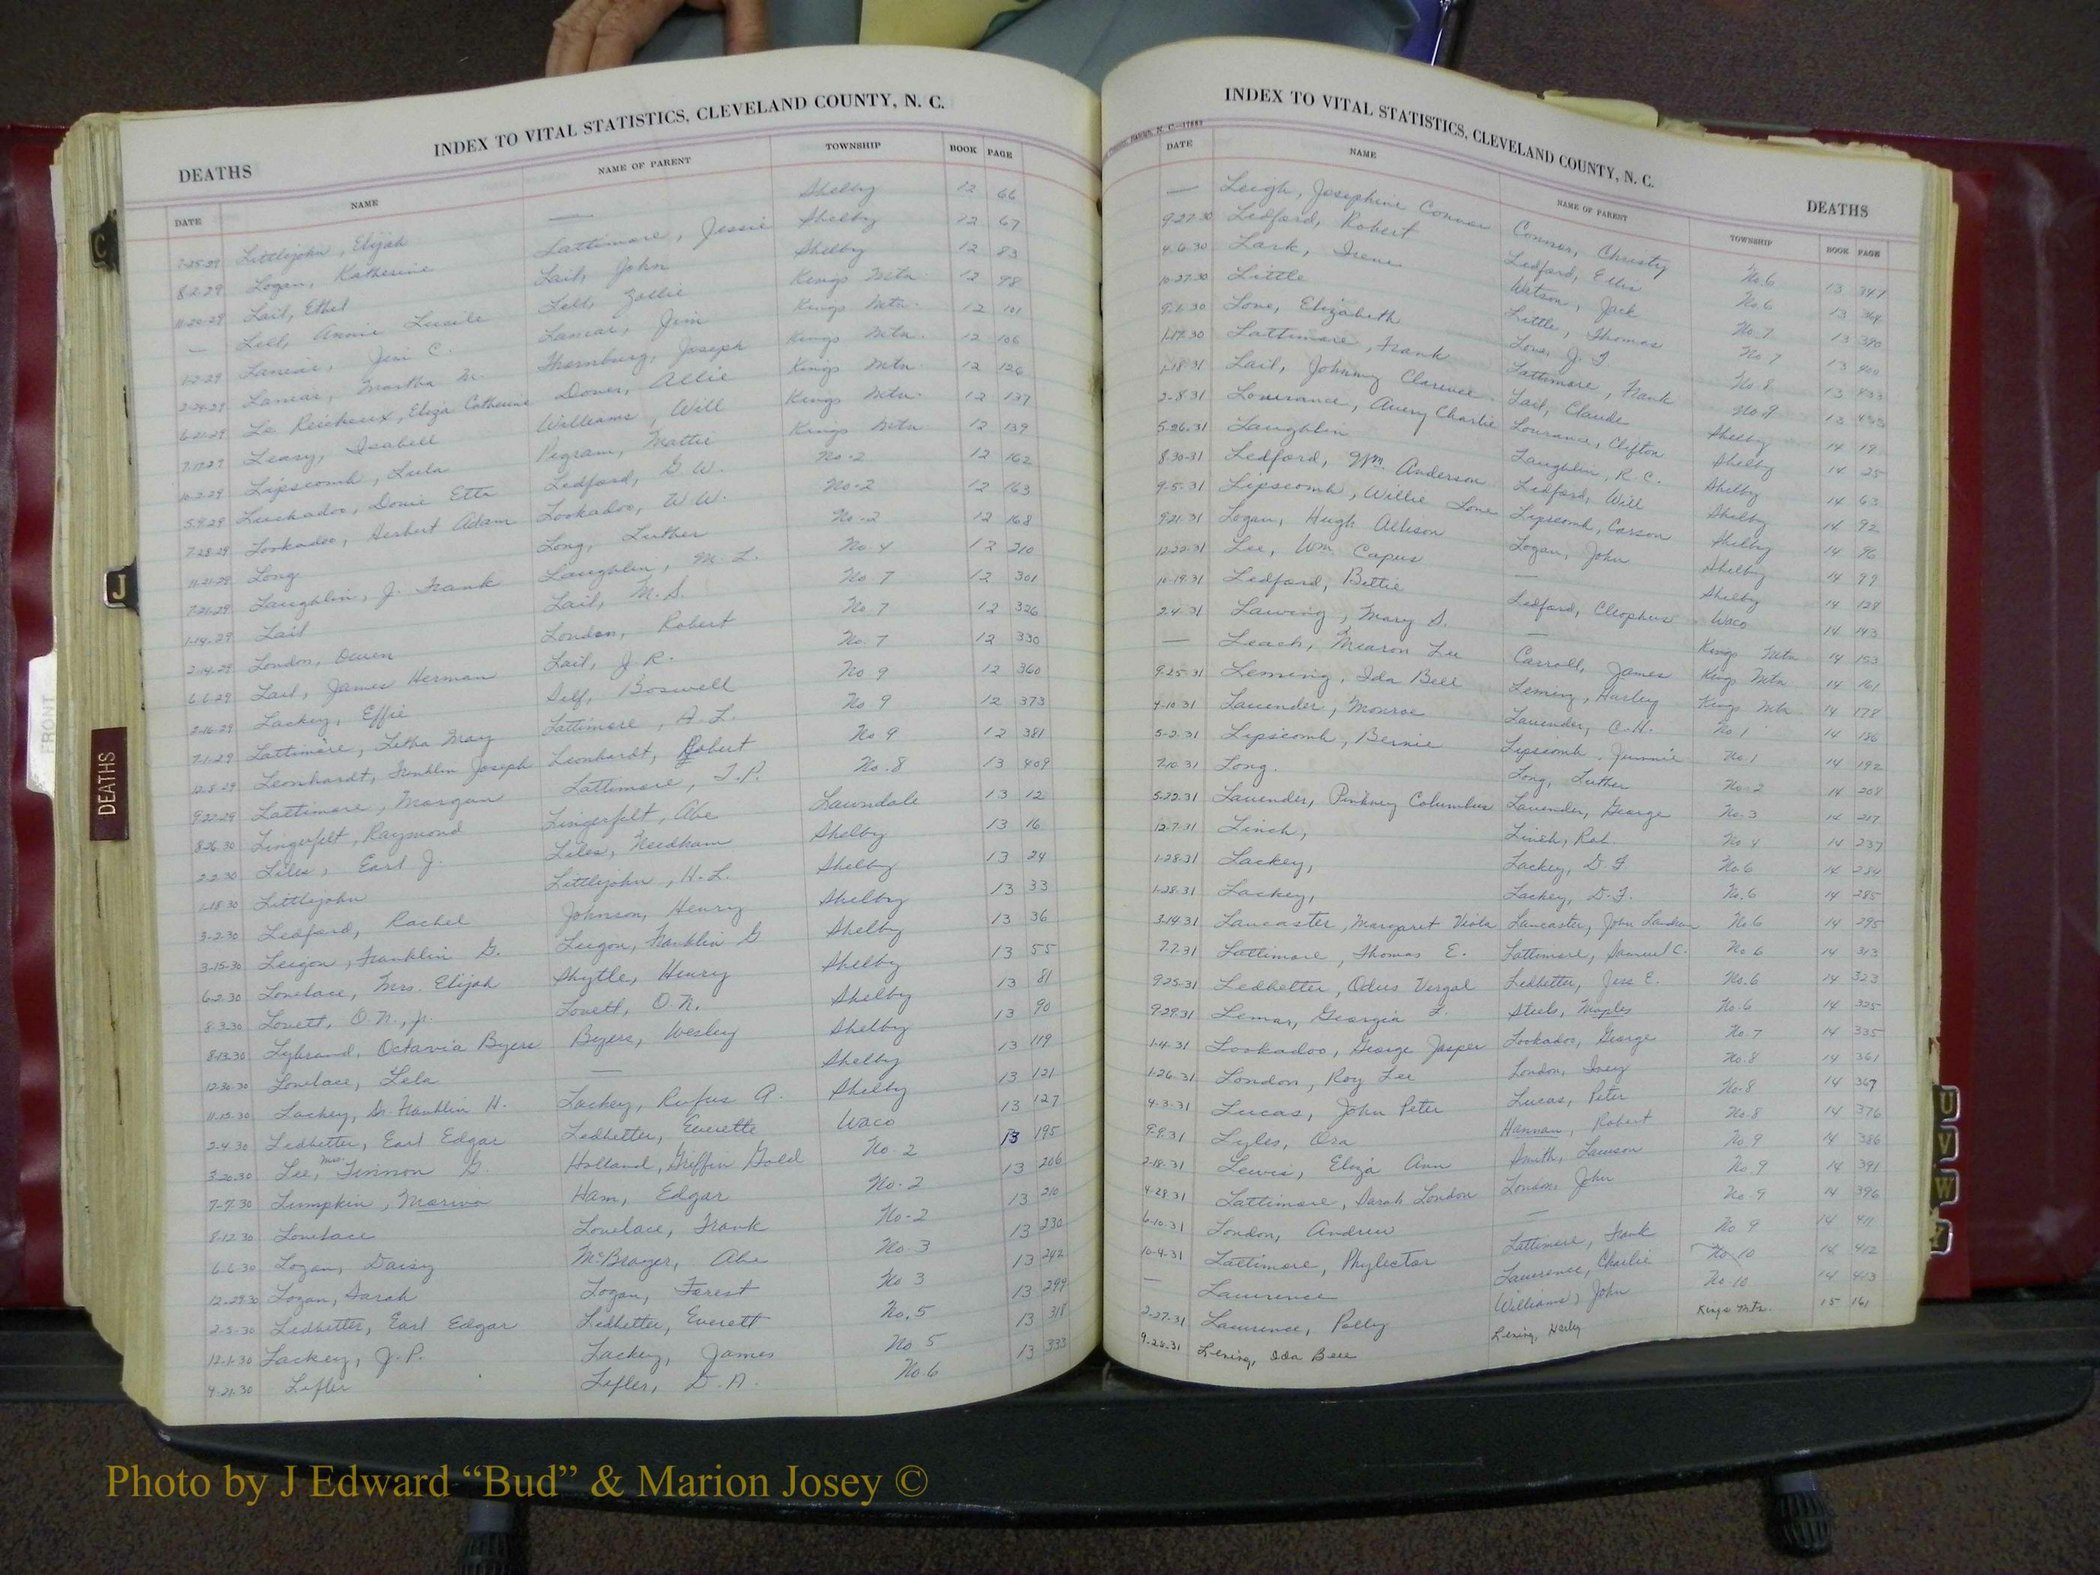 INDEX TO VITAL STATISTICS, CLEVELAND COUNTY, N. C.
DEATHS
DATE NAME NAME OF PARENT TOWNSHIP BOOK PAGE
7-25-29 Littlejohn, Elijah — Shelby 12 66
8-2-29 Logan, Katherine Lattimore, Jessie Shelby 12 67
11-20-29 Lail, Ethel Lail, John Shelby 12 83
— Lell, Annie Lucile Lell, Zollie Kings Mtn. 12 98
1-2-29 Lanier, Jim C. Lanier, Jim Kings Mtn. 12 101
2-24-29 Lanier, Martha M. Thornburg, Joseph Kings Mtn. 12 106
6-21-29 Le Reicheux, Eliza Catherine Dover, Allie Kings Mtn 12 126
7-17-29 Leary, Isabell Williams, Will Kings Mtn. 12 137
10-2-29 Lipscomb, Lula Pegram, Mattie Kings Mtn 12 139
5-9-29 Luckadoo, Dovie Etta Ledford, G. W. No-2 12 162
7-28-29 Lookadoo, Herbert Adam Lookadoo, W. W. No-2 12 163
11-21-29 Long Long, Luther No-2 12 168
7-21-29 Laughlin, J. Frank Laughlin, M. L. No. 4 12 210
1-14-29 Lail Lail, M. S. No 7 12 301
2-14-29 London, Owen London, Robert No. 7 12 326
6-6-29 Lail, James Herman Lail, J. R. No. 7 12 330
2-16-29 Lackey, Effie Self, Boswell No. 9 12 360
7-1-29 Lattimore, Letha May Lattimore, A. L. No 9 12 373
12-8-29 Leonhardt, Franklin Joseph Leonhardt, Robert No 9 12 381
9-22-29 Lattimore, Morgan Lattimore, T. P. No. 8 13 409
8-26-30 Lingerfelt, Raymond Lingerfelt, Abe Lawndale 13 12
2-2-30 Liles, Earl J. Liles, Needham Shelby 13 16
1-18-30 Littlejohn Littlejohn, H. L. Shelby 13 24
3-2-30 Ledford, Rachel Johnson, Henry Shelby 13 33
3-15-30 Leigon, Franklin G. Leigon, Franklin G Shelby 13 36
6-2-30 Lovelace, Mrs. Elijah Shytle, Henry Shelby 13 55
8-3-30 Lovett, O. N., jr. Lovett, O. N. Shelby 13 81
8-13-30 Lybrand, Octavia Byers Byers, Wesley Shelby 13 90
12-30-30 Lovelace, Lela — Shelby 13 119
11-15-30 Lackey, Dr. Franklin H. Lackey, Rufus A. Shelby 13 121
2-4-30 Ledbetter, Earl Edgar Ledbetter, Everette Waco 13 127
3-20-30 Lee, Mrs. Finnon G. Holland, Griffin Gold No. 2 13 195
7-7-30 Lumpkin, Marivia Ham, Edgar No. 2 13 206
8-12-30 Lovelace Lovelace, Frank No-2 13 210
6-6-30 Logan, Daisy McBrayer, Abe No. 3 13 230
12-29-30 Logan, Sarah Logan, Forest No 3 13 242
2-5-30 Ledbetter, Earl Edgar Ledbetter, Everett No. 5 13 299
12-1-30 Lackey, J. P. Lackey, James No 5 13 318
4-21-30 Lefler Lefler, D. A. No. 6 13 333
INDEX TO VITAL STATISTICS, CLEVELAND COUNTY, N. C.
DEATHS
DATE NAME NAME OF PARENT TOWNSHIP BOOK PAGE
— Leigh, Josephine Connor Connor, Christy No. 6 13 347
9-27-30 Ledford, Robert Ledford, Ellis No. 6 13 364
4-6-30 Lark, Irene Watson, Jack No. 7 13 380
10-27-30 Little Little, Thomas No 7 13 400
9-6-30 Love, Elizabeth Love, J. F No. 8 13 433
1-17-30 Lattimore, Frank Lattimore, Frank No. 9 13
1-18-31 Lail, Johnny Clarence Lail, Claude Shelby 14 19
2-8-31 Lowrance, Avery Charlie Lowrance, Clifton Shelby 14 25
5-26-31 Laughlin Laughlin, R. C. Shelby 14 63
8-30-31 Ledford, Wm Anderson Ledford, Will Shelby 14 92
9-5-31 Lipscomb, Willie Love Lipscomb, Carson Shelby 14 96
9-21-31 Logan, Hugh Allison Logan, John Shelby 14 99
12-22-31 Lee, Wm Capus — Shelby 14 128
10-19-31 Ledford, Bettie Ledford, Cleophus Waco 14 143
2-4-31 Lawing, Mary S. — Kings Mtn 14 153
— Leach, Mearon Lee Carroll, James Kings Mtn 14 161
9-25-31 Leming, Ida Bell Leming, Harley Kings Mtn 14 178
4-10-31 Lavender, Monroe Lavender, C. H. No. 1 14 186
5-2-31 Lipscomb, Bernie Lipscomb, Jimmie No. 1 14 192
7-10-31 Long. Long, Luther No-2 14 208
5-22-31 Lavender, Pinkney Columbus Lavender, George No. 3 14 217
12-7-31 Linch, Linch, Rob. No 4 14 237
1-28-31 Lackey, Lackey, D. F. No. 6 14 284
1-28-31 Lackey, Lackey, D. F. No. 6 14 285
3-14-31 Lancaster, Margaret Viola Lancaster, John Landrum No 6 14 295
7-7-31 Lattimore, Thomas E. Lattimore, Samuel C. No 6 14 313
9-25-31 Ledbetter, Odus Vergal Ledbetter, Jess E. No. 6 14 323
9-29-31 Lemar, Georgia F. Steele, Maples No. 6 14 325
1-4-31 Lookadoo, George Jasper Lookadoo, George No 7 14 335
1-26-31 London, Roy Lee London, Ivey No. 8 14 361
4-3-31 Lucas, John Peter Lucas, Peter No-8 14 367
9-9-31 Lyles, Ora Hannan, Robert No. 8 14 376
2-18-31 Lewis, Eliza Ann Smith, Lawson No. 9 14 386
4-28-31 Lattimore, Sarah London London, John No. 9 14 391
6-10-31 London, Andrew — No. 9 14 396
10-4-31 Lattimore, Phylector Lattimore, Frank No 9 14 411
— Lawrence Lawrence, Charlie No 10 14 412
2-27-31 Lawrence, Polly Williams, John No 10 14 413
9-25-31 Lening, Ida Bell Lening, Harley Kings Mtn. 15 161
C
J
FRONT
DEATHS
U
V
W
Y
Photo by J Edward “Bud” & Marion Josey ©